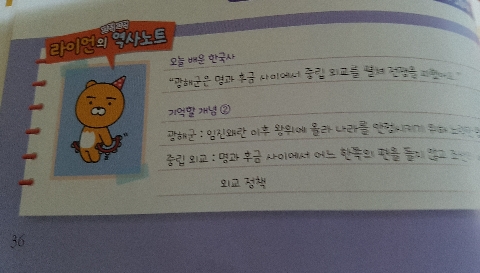 라이언의 역사노트
오늘 배운 한국사
"광해군은 명과 후금 사이에서 중립 외교를 펼쳐 전쟁을 피했어요."
기억할 개념 ②
광해군 : 임진왜란 이후 왕위에 올라 나라를 안정시키기 위해
중립 외교 : 명과 후금 사이에서 어느 한쪽의 편을 들지 않고
외교 정책
36